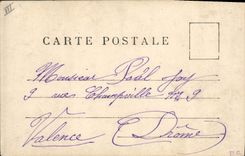 III
CARTE POSTALE
Monsieur Joël Joy
9 rue Championville № 9
Valence (Drôme)